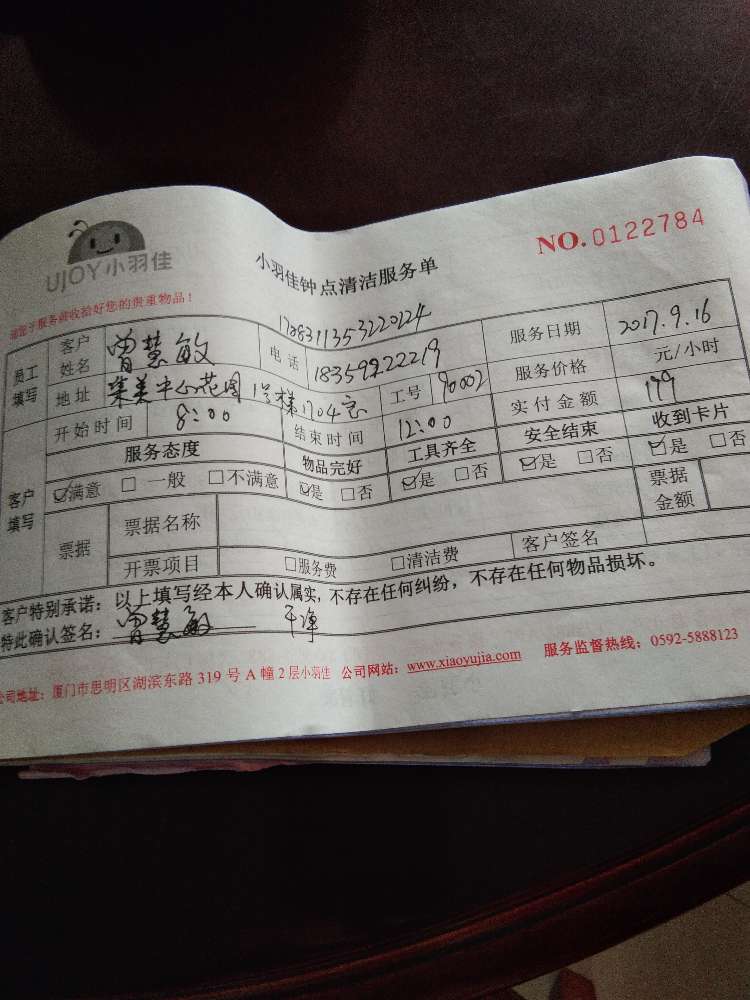 UJOY小羽佳
小羽佳钟点清洁服务单
NO.0122784
请您于服务前收拾好您的贵重物品！
1708311353220224
员工填写
客户姓名 曾慧敏 电话 18359222219 服务日期 2017.9.16
地址 集美中心花园1号楼1704室 工号 90002 服务价格 元/小时
开始时间 8:00 结束时间 12:00 实付金额 199
客户填写
服务态度 物品完好 工具齐全 安全结束 收到卡片
☑满意 □一般 □不满意 ☑是 □否 ☑是 □否 ☑是 □否 ☑是 □否
票据 票据名称 票据金额
开票项目 □服务费 □清洁费 客户签名
客户特别承诺：以上填写经本人确认属实，不存在任何纠纷，不存在任何物品损坏。
特此确认签名：曾慧敏 干净
公司地址：厦门市思明区湖滨东路319号A幢2层小羽佳 公司网站：www.xiaoyujia.com 服务监督热线：0592-5888123